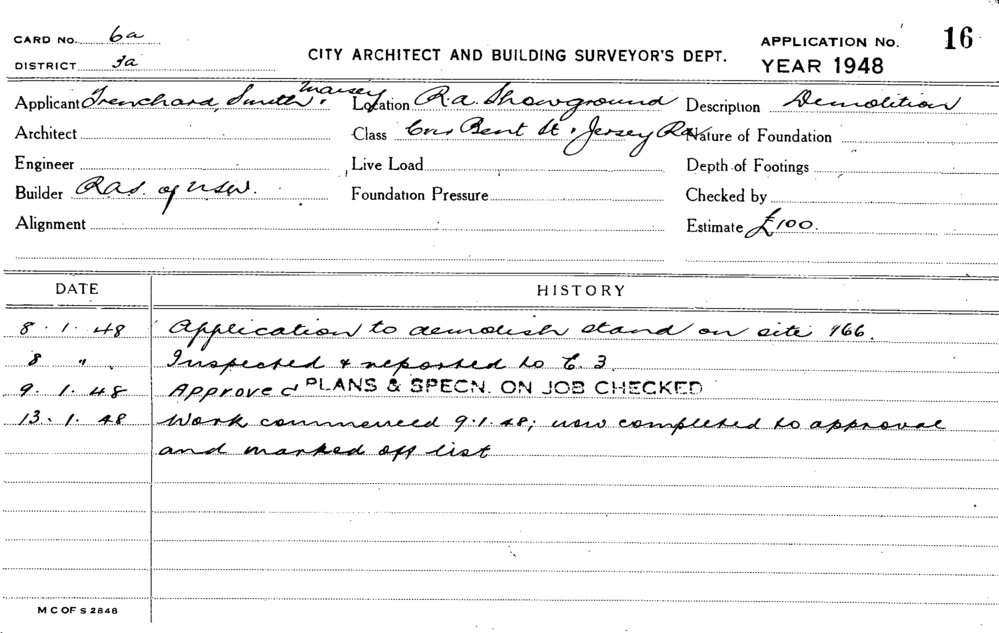 CARD No. 6a
DISTRICT 3a
CITY ARCHITECT AND BUILDING SURVEYOR'S DEPT.
APPLICATION No. 16
YEAR 1948
Applicant Trenchard, Smith, Maisey Location R.a. Showground Description Demolition
Architect Class Cnr Bent St. & Jersey Rd. Nature of Foundation
Engineer Live Load Depth of Footings
Builder R.a.s. of N.S.W. Foundation Pressure Checked by
Alignment Estimate £100.
DATE HISTORY
8 . 1 . 48 Application to demolish stand on site 466.
8 " Inspected & reported to C. 3.
9 . 1 . 48 Approved PLANS & SPECN. ON JOB CHECKED
13 . 1 . 48 Work commenced 9.1.48; now completed to approval
and marked off list
M C OF S 2846